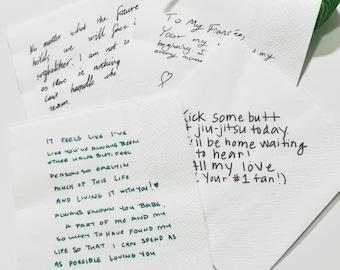 No matter what the future
holds we will face it
together. I am not
as there is nothing
can't handle
team.
To My Fiancée,
Your my
beginning,
every
IT FEELS LIKE I'VE
LIKE YOU'VE ALWAYS BEEN
OTHER HALVE BUT, FEEL
PERSON SO EARLY IN
MUCH OF THIS LIFE
AND LIVING IT WITH YOU!
ALWAYS KNOWN YOU BABE,
A PART OF ME AND MY
SO LUCKY TO HAVE FOUND MY
LIFE SO THAT I CAN SPEND AS
AS POSSIBLE LOVING YOU
Kick some butt
t jiu-jitsu today
'll be home waiting
to hear!
ll my love
(Your #1 fan!)